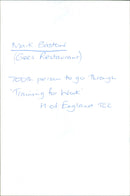 Nick Easton
(Gees Restaurant)
person to go through
Training for Work
H of England TEC